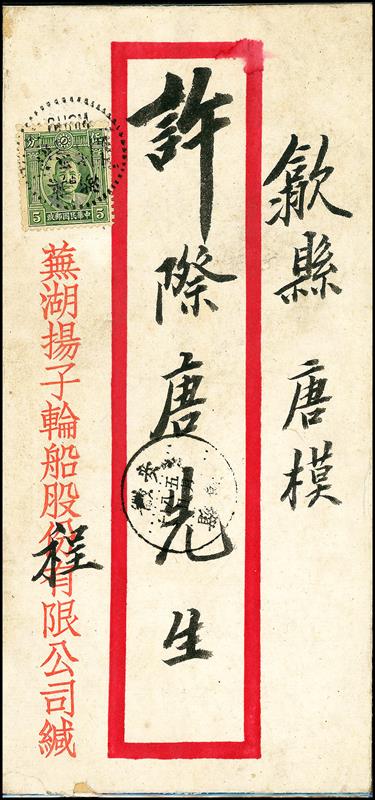 歙縣 唐模
許際唐先生
蕪湖揚子輪船股份有限公司緘
程
5 中華民國郵政 5